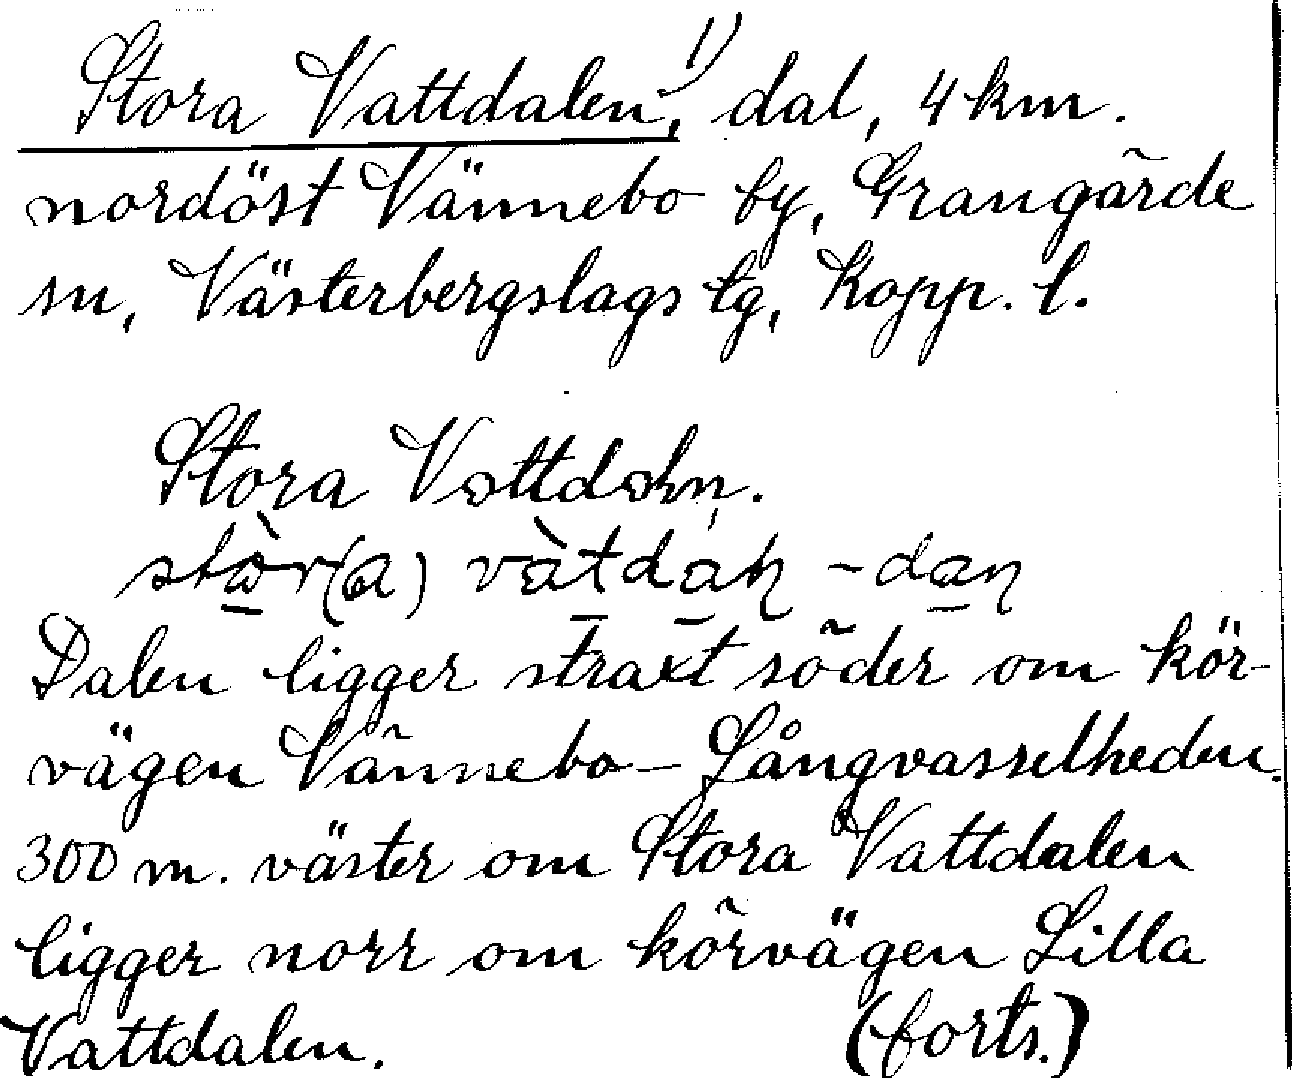 Stora Vattdalen,¹⁾ dal, 4 km.
nordöst Vännebo by, Grangärde
sn, Västerbergslags tg, Kopp. l.
Stora Vattdaln.
Dalen ligger straxt söder om kör-
vägen Vännebo - Långvasselheden.
300 m. väster om Stora Vattdalen
ligger norr om körvägen Lilla
Vattdalen. (forts.)